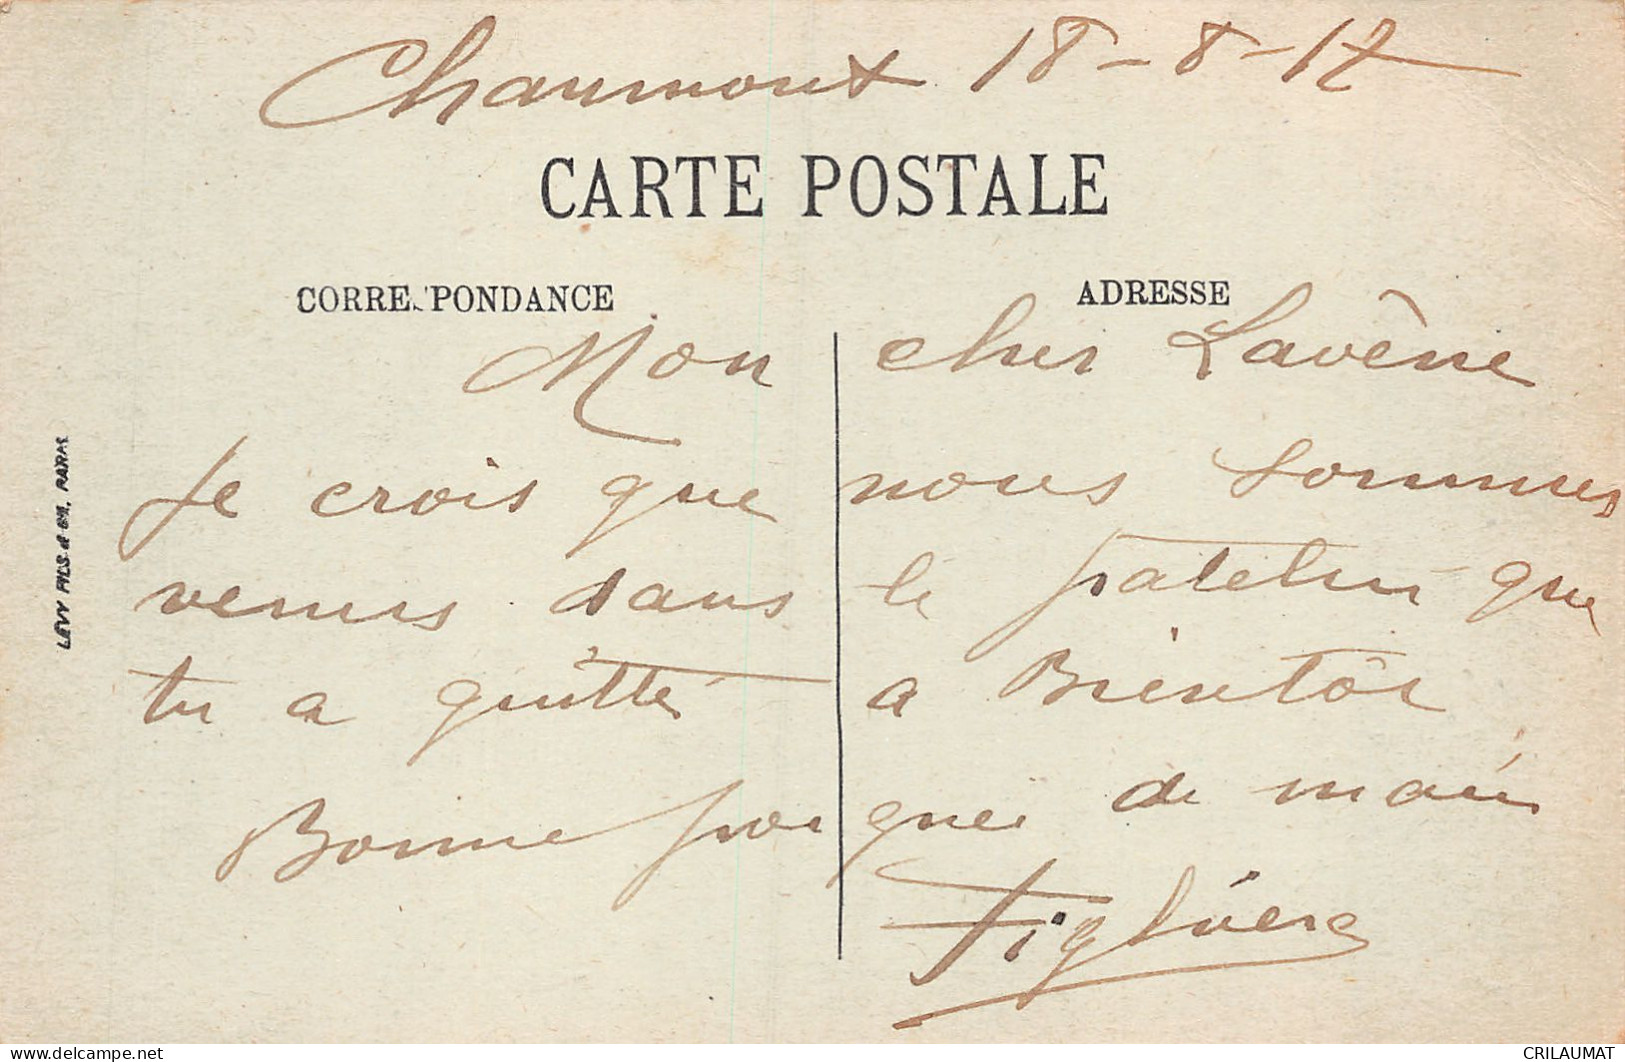 Chaumont 18-8-17
CARTE POSTALE
CORRESPONDANCE
ADRESSE
Mon cher Lavêne
Je crois que nous sommes
venus dans le patelin que
tu a quitté a Bientôt
Bonne poi gnei de main
LEVY FILS & Cie, PARIS
CRILAUMAT
delcampe.net